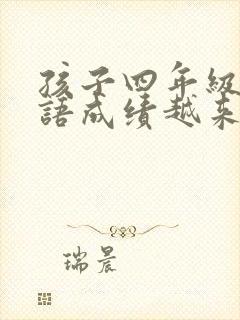 孩子四年級
語成績越来
瑞晨